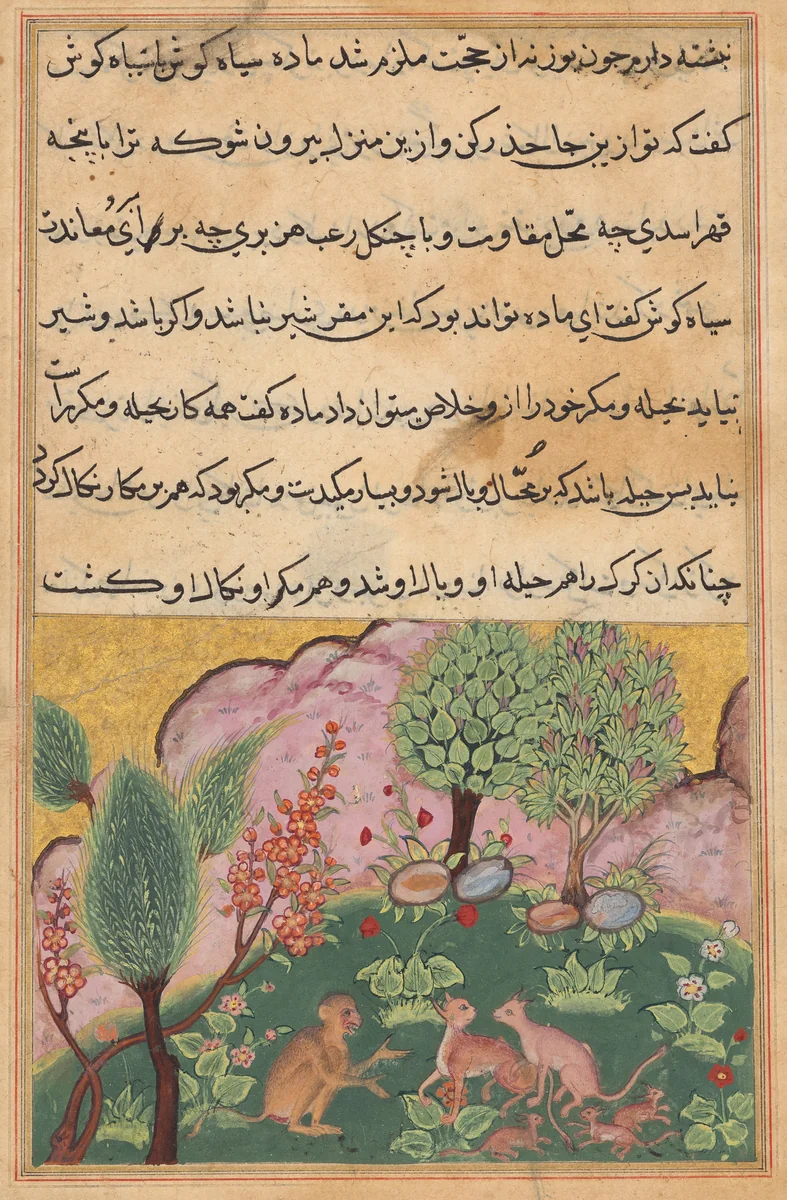 نبشته دارم جون بوزنه از حجّت ملزم شد ماده سیاه کوش با سیاه کوش
کفت که تو ازین جا حذر کن و ازین منزل بیرون شو که ترا با پنجه
قهر اسدی چه محّل مقاومت و با چنکل رعب هزبری چه برٖ اٰیُ مُعاندت
سیاه کوش کفت ای ماده تواند بود که این مقر شیر نباشد و اکر باشد و شیر
بیاید بحیله و مکر خود را از و خلاص میتوان داد ماده کفت همه کار بحیله و مکر راست
نیاید بس حیله باشد که بر مُحّال وبال شود و بسیار مکیدت و مکر بود که هم بر مکار نکال کردد
چنانکه ان کرک را هم حیله او وبال او شد و هم مکر او نکال او کشت